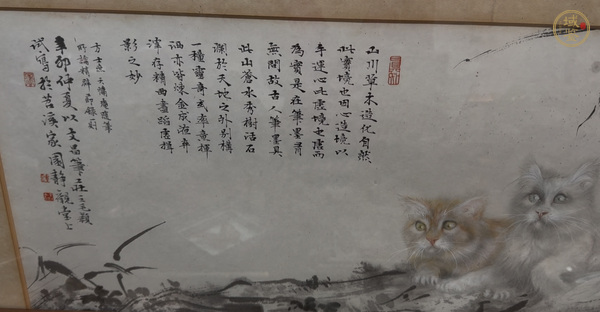 山川草木造化自然
此實境也因心造境以
手運心此虛境也虛而
為實是在筆墨有
無間故古人筆墨具
此山蒼水秀樹活石
潤於天地之外別構
一種靈奇或率意揮
洒亦皆煉金成液棄
滓存精曲盡蹈虛揖
影之妙
方士庶天慵庵隨筆
辛卯仲夏以文君筆莊主毛穎
試寫於苕溪家園靜觀堂上
域鑒